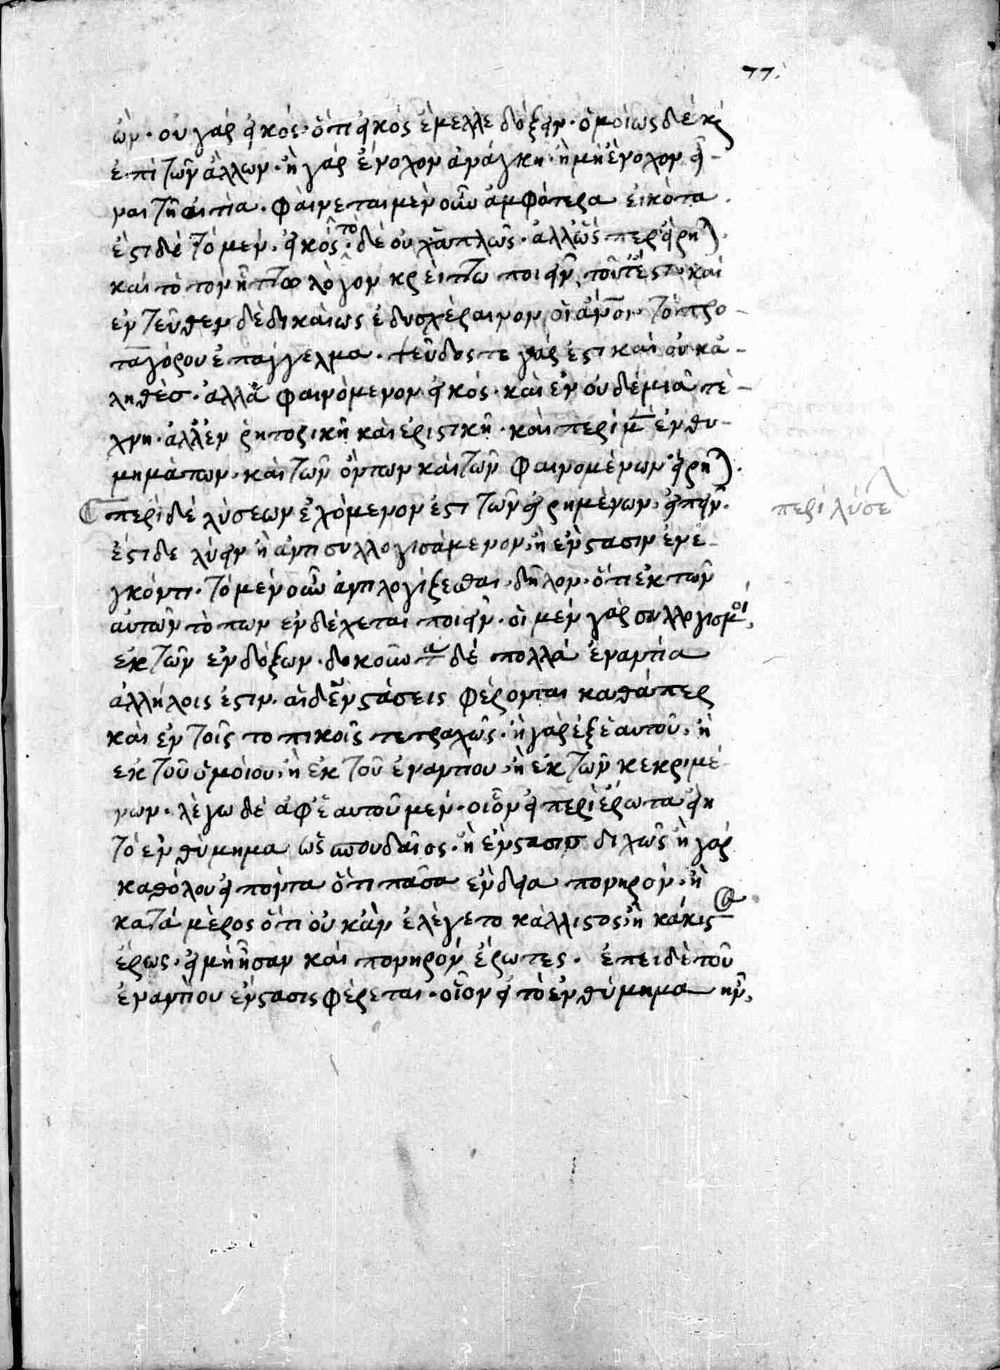 77.
ὢν · οὐ γὰρ εἰκός · ὅτι εἰκὸς ἔμελλε δόξειν · ὁμοίως δὲ κ̀
ἐπὶ τῶν ἄλλων · ἢ γὰρ ἔνοχον ἀνάγκη · ἢ μὴ ἔνοχον εἶ-
ναι τῆ αἰτία · φαίνεται μὲν οὖν ἀμφότερα εἰκότα ·
ἔστι δὲ τὸ μὲν · εἰκός · τὸ δὲ οὐχ ἁπλῶς · ἀλλ' ὥς περ εἴρη)·
καὶ τὸ τὸν ἥττω λόγον κρείττω ποιεῖν, τοῦτ' ἔστι · καὶ
ἐντεῦθεν δὲ δικαίως ἐδυσχέραινον οἱ ἄνοι · τὸ πρω-
ταγόρου ἐπάγγελμα · ψεῦδος τε γάρ ἐστι καὶ οὐκ ἀ-
ληθὲς · ἀλλὰ φαινόμενον εἰκός · καὶ ἐν οὐδεμιᾶ τέ-
χνη · ἀλλ' ἐν ῥητορικῆ καὶ ἐριστικῆ · καὶ περὶ μ̀ ἐνθυ-
μημάτων · καὶ τῶν ὄντων καὶ τῶν φαινομένων εἴρη)·
περὶ δὲ λύσεων ἐχόμενον ἐστι τῶν εἰρημένων · εἰπεῖν ·
περὶ λύσε
ἔστι δὲ λύειν ἢ ἀντισυλλογισάμενον · ἢ ἔνστασιν ἐνε-
γκόντι · τὸ μὲν οὖν ἀντιλογίζεσθαι · δῆλον · ὅτι ἐκ τῶν
αὐτῶν τόπων ἐνδέχεται ποιεῖν · οἱ μὲν γὰρ συλλογισμοί,
ἐκ τῶν ἐνδόξων · δοκοῦντα δὲ πολλὰ ἐναντία
ἀλλήλοις ἐστιν · αἱ δ' ἐνστάσεις φέρονται καθάπερ
καὶ ἐν τοῖς τοπικοῖς τετραχῶς · ἢ γὰρ ἐξ ἑαυτοῦ · ἢ
ἐκ τοῦ ὁμοίου · ἢ ἐκ τοῦ ἐναντίου · ἢ ἐκ τῶν κεκριμέ-
νων · λέγω δὲ ἀφ' ἑαυτοῦ μὲν · οἷον εἰ περὶ ἔρωτα εἴη
τὸ ἐνθύμημα ὡς σπουδαῖος · ἡ ἔνστασις διχῶς ἢ γὰρ
καθόλου εἰπόντα ὅτι πᾶσα ἔνδεια πονηρόν · ἢ
κατὰ μέρος ὅτι οὐκ ἂν ἐλέγετο κάλλιστος ἢ κάκιστ
ἔρως · εἰ μὴ ἦσαν καὶ πονηρὸν ἔρωτες · ἐπειδὲ τοῦ
ἐναντίου ἔνστασις φέρεται · οἷον εἰ τὸ ἐνθύμημα ἦν,